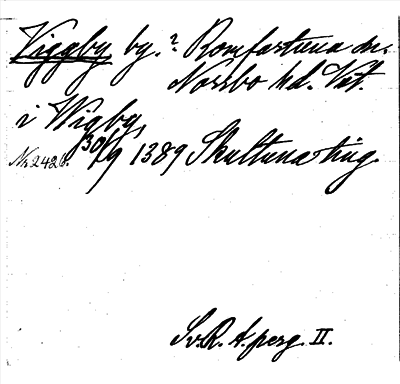 Viggby by.? Romfartuna sn.
Norrbo hd. Vst.
i Wigby,
Nr 2426. 30/9 1389 Skultuna ting.
Sv.R.A. perg. II.